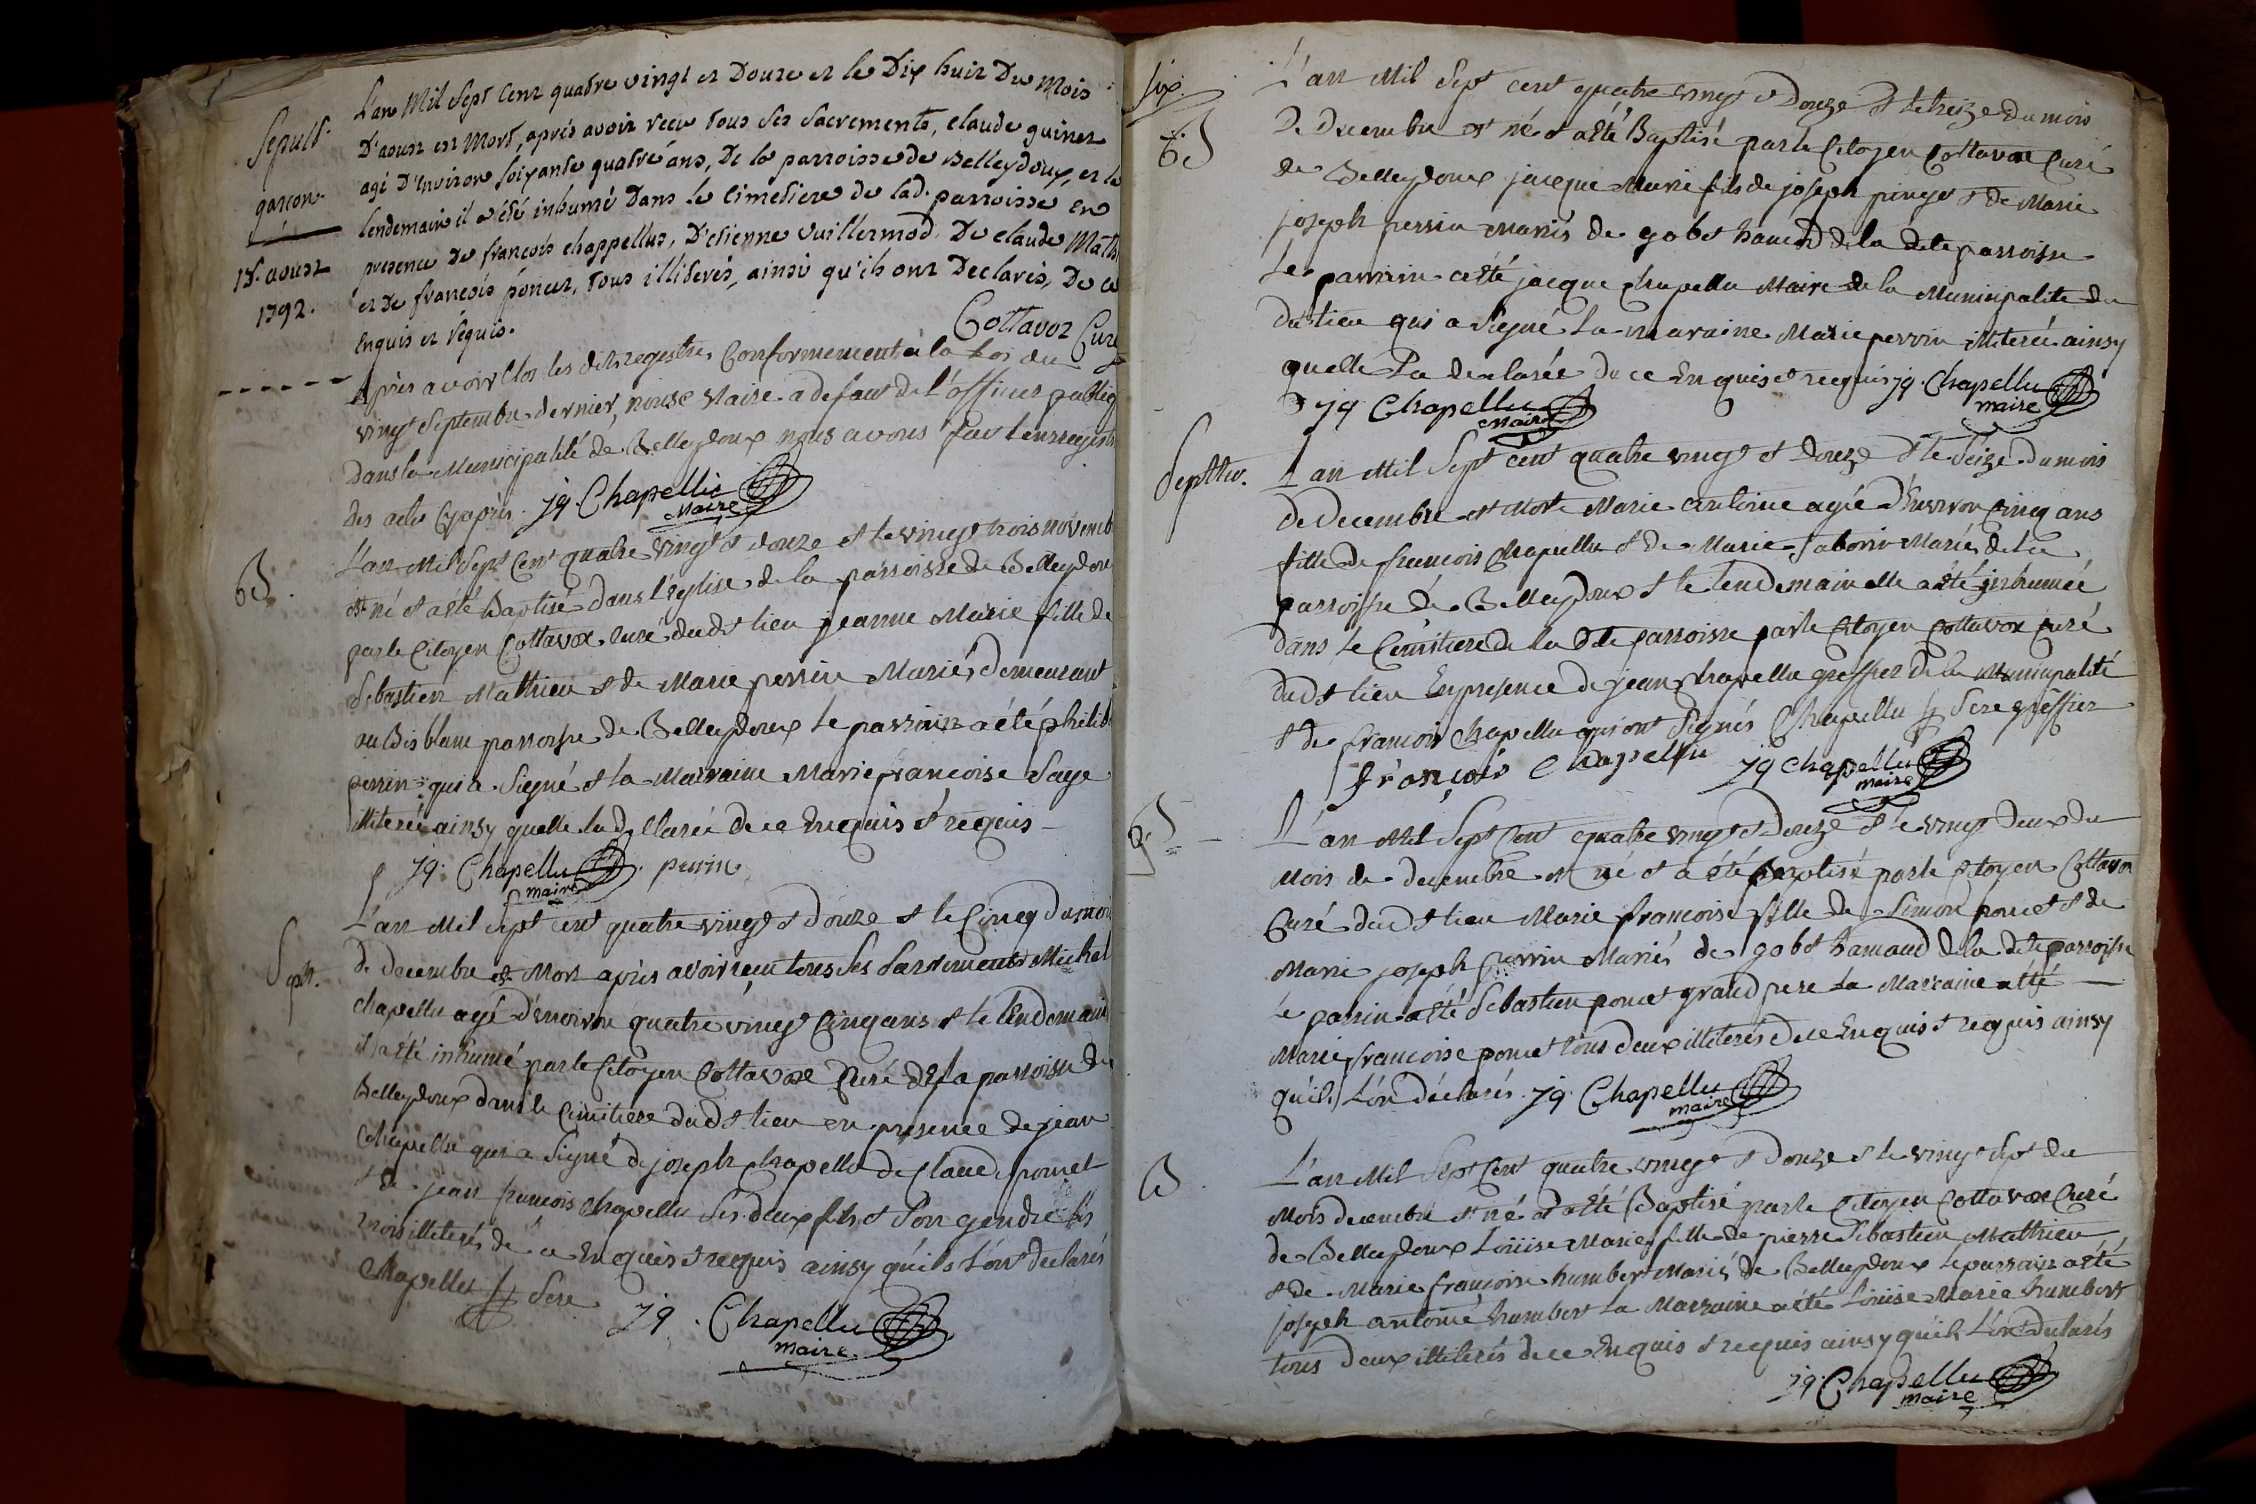 Sepult.
garçon.
18. aoust
1792.
L'an Mil Sept Cent quatre vingt et Douze et le Dix huit Du Mois
D'aoust est Mort, après avoir reçu tous ses sacrements, claude guinet
agé D'Environ soixante quatre ans, De la parroisse de Belleydoux, et le
lendemain il a été inhumé Dans le cimetiere de lad. parroisse en
presence de françois chappelluz, D'etienne vuillermod, De claude Math
et De françois poncet, tous illiterés, ainsi qu'ils ont Declarés, De ce
Enquis et requis.
Cottavoz Curé
Après avoir Clos les dits registres Conformement à la Loi du
vingt Septembre dernier, nous Maire a defaut de l'officier public
dans la Municipalité de Belleydoux nous avons fait l'enregistr
des actes Cy après. jq. Chapellu
Maire
B.
L'an Mil Sept Cent quatre vingt et douze et le vingt trois novemb
est né et a été Baptisé dans l'eglise de la parroisse de Belleydou
par le Citoyen Cottavox Curé dudt lieu jeanne Marie fille de
Sebastien Mathieu et de Marie perrin Mariés demeurant
au Bis blanc parroisse de Belleydoux le parrain a été philib
perrin qui a Signé et la Marraine Marie françoise Saye
illiterée ainsy quelle la déllarée de ce Enquis et requis
jq. Chapellu perrin
maire
Sept.
L'an Mil Sept cent quatre vingt et douze et le Cinq du mois
de decembre est Mort après avoir reçu tous ses Sacrements Michel
Chapellu agé d'environ quatre vingt Cinq ans et le lendemain
il a été inhumé par le Citoyen Cottavox Curé de la parroisse de
Belleydoux dans le Cimitiere dudt lieu en presence de jean
Chapellu qui a Signé de joseph Chapellu de Claude poncet
et de jean françois Chapellu ses deux fils et Son gendre les
trois illiterés de ce Enquis et requis ainsy qu'ils L'ont declarés
Chapellu Sere
jq. Chapellu
maire
Six.
B
L'an Mil Sept cent quatre vingt et Douze et le treize du mois
De Decembre est né et a été Baptisé par le Citoyen Cottavox Curé
de Belleydoux jacque Marie fils de joseph pinget et de Marie
joseph perrin mariés de gobet hameau de la dite parroisse
le parrain a été jacque Chapellu Maire de la Municipalité du
dit lieu qui a Signé La maraine Marie perrin illiterée ainsy
quelle La declarée de ce Enquis et requis jq. Chapellu
maire
jq Chapellu
Maire
Septtur.
L'an Mil Sept cent quatre vingt et douze et le Seize du mois
de Decembre est Morte Marie antoine agée d'Environ Cinq ans
fille de françois Chapellu et de Marie Mariés de la
parroisse de Belleydoux et le lendemain elle a été inhumée
dans le Cémitiere de la dte parroisse par le Citoyen Cottavox Curé
dudt lieu En presence de jean Chapellu greffier de la Municipalité
et de françois Chapellu qui ont Signés Chapellu Sere greffier
françois Chapellu jq Chapellu
maire
B
L'an Mil Sept Cent quatre vingt et douze et le vingt Deux du
Mois de decembre est né et a été Baptisé par le Citoyen Cottavox
Curé dudt lieu Marie françoise fille de Simon poncet et de
Marie joseph perrin Mariés de gobet hamaud de la dte parroisse
le parrin a été Sebastien poncet grand pere La Marraine a été
Marie françoise poncet tous deux illiterés de ce Enquis et requis ainsy
qu'ils L'on déclarés jq. Chapellu
maire
B
L'an Mil Sept Cent quatre vingt et Douze et le vingt Sept du
Mois decembre est né et a été Baptisé par le Citoyen Cottavox Curé
de Belleydoux Louise Marie fille de pierre Sebastien Mathieu
et de Marie françoise humbert Mariés de Belleydoux le parrain a été
joseph antoine humbert La Marraine a été Louise Marie humbert
tous deux illiterés de ce Enquis et requis ainsy qu'ils L'on declarés
jq. Chapellu
maire